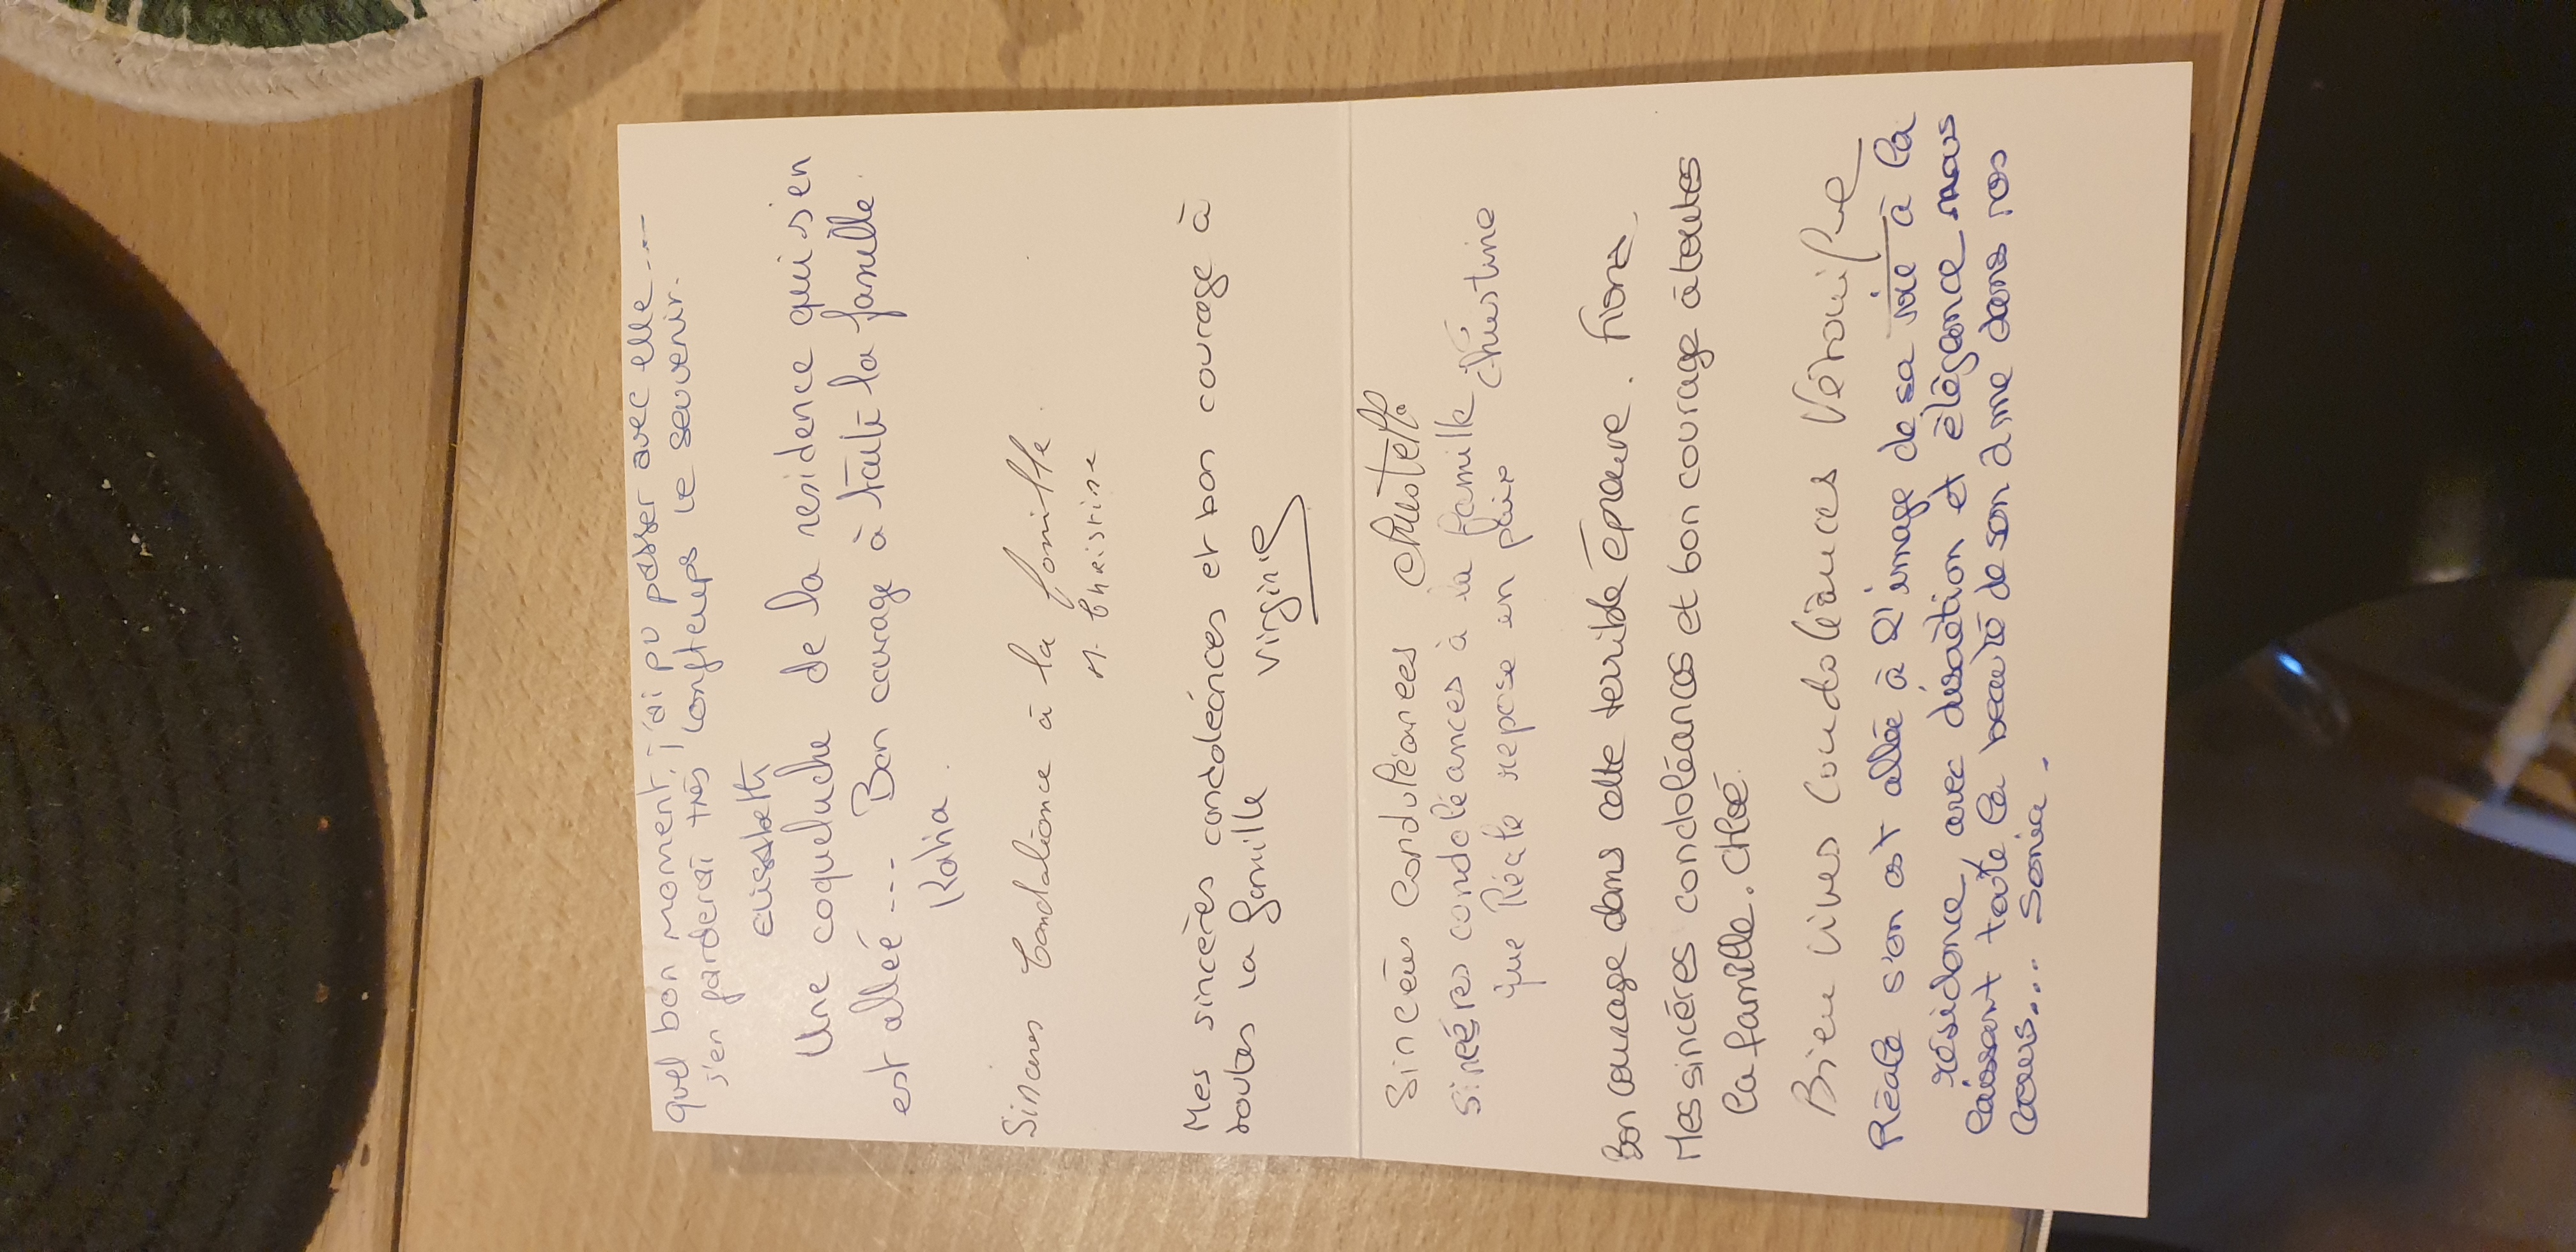 quel bon moment j'ai pu passer avec elle ---
j'en garderai très longtemps le souvenir.
Une coqueluche de la residence qui s'en
est alleé --- Bon courage à toute la famille.
Katia.
Sinceres Condoléance à la famille.
M. Christine
Mes sincères condoléénces et bon courage à
toutes la famille Virginie
Sincéres Condoléances Christelle
sincéeres condoléances à la famille Christine
que Réale repose en paix
Bon courage dans cette terrible épreuve. Fiona.
Mes sincéres condoléances et bon courage à toutes
la famille. Chloé.
Bien vives Condoléances Véronique
Réale s'en est allée à l'image de sa vie à la
résidence, avec discrétion et élégance nous
laissant toute la beauté de son âme dans nos
coeurs.... Sonia.